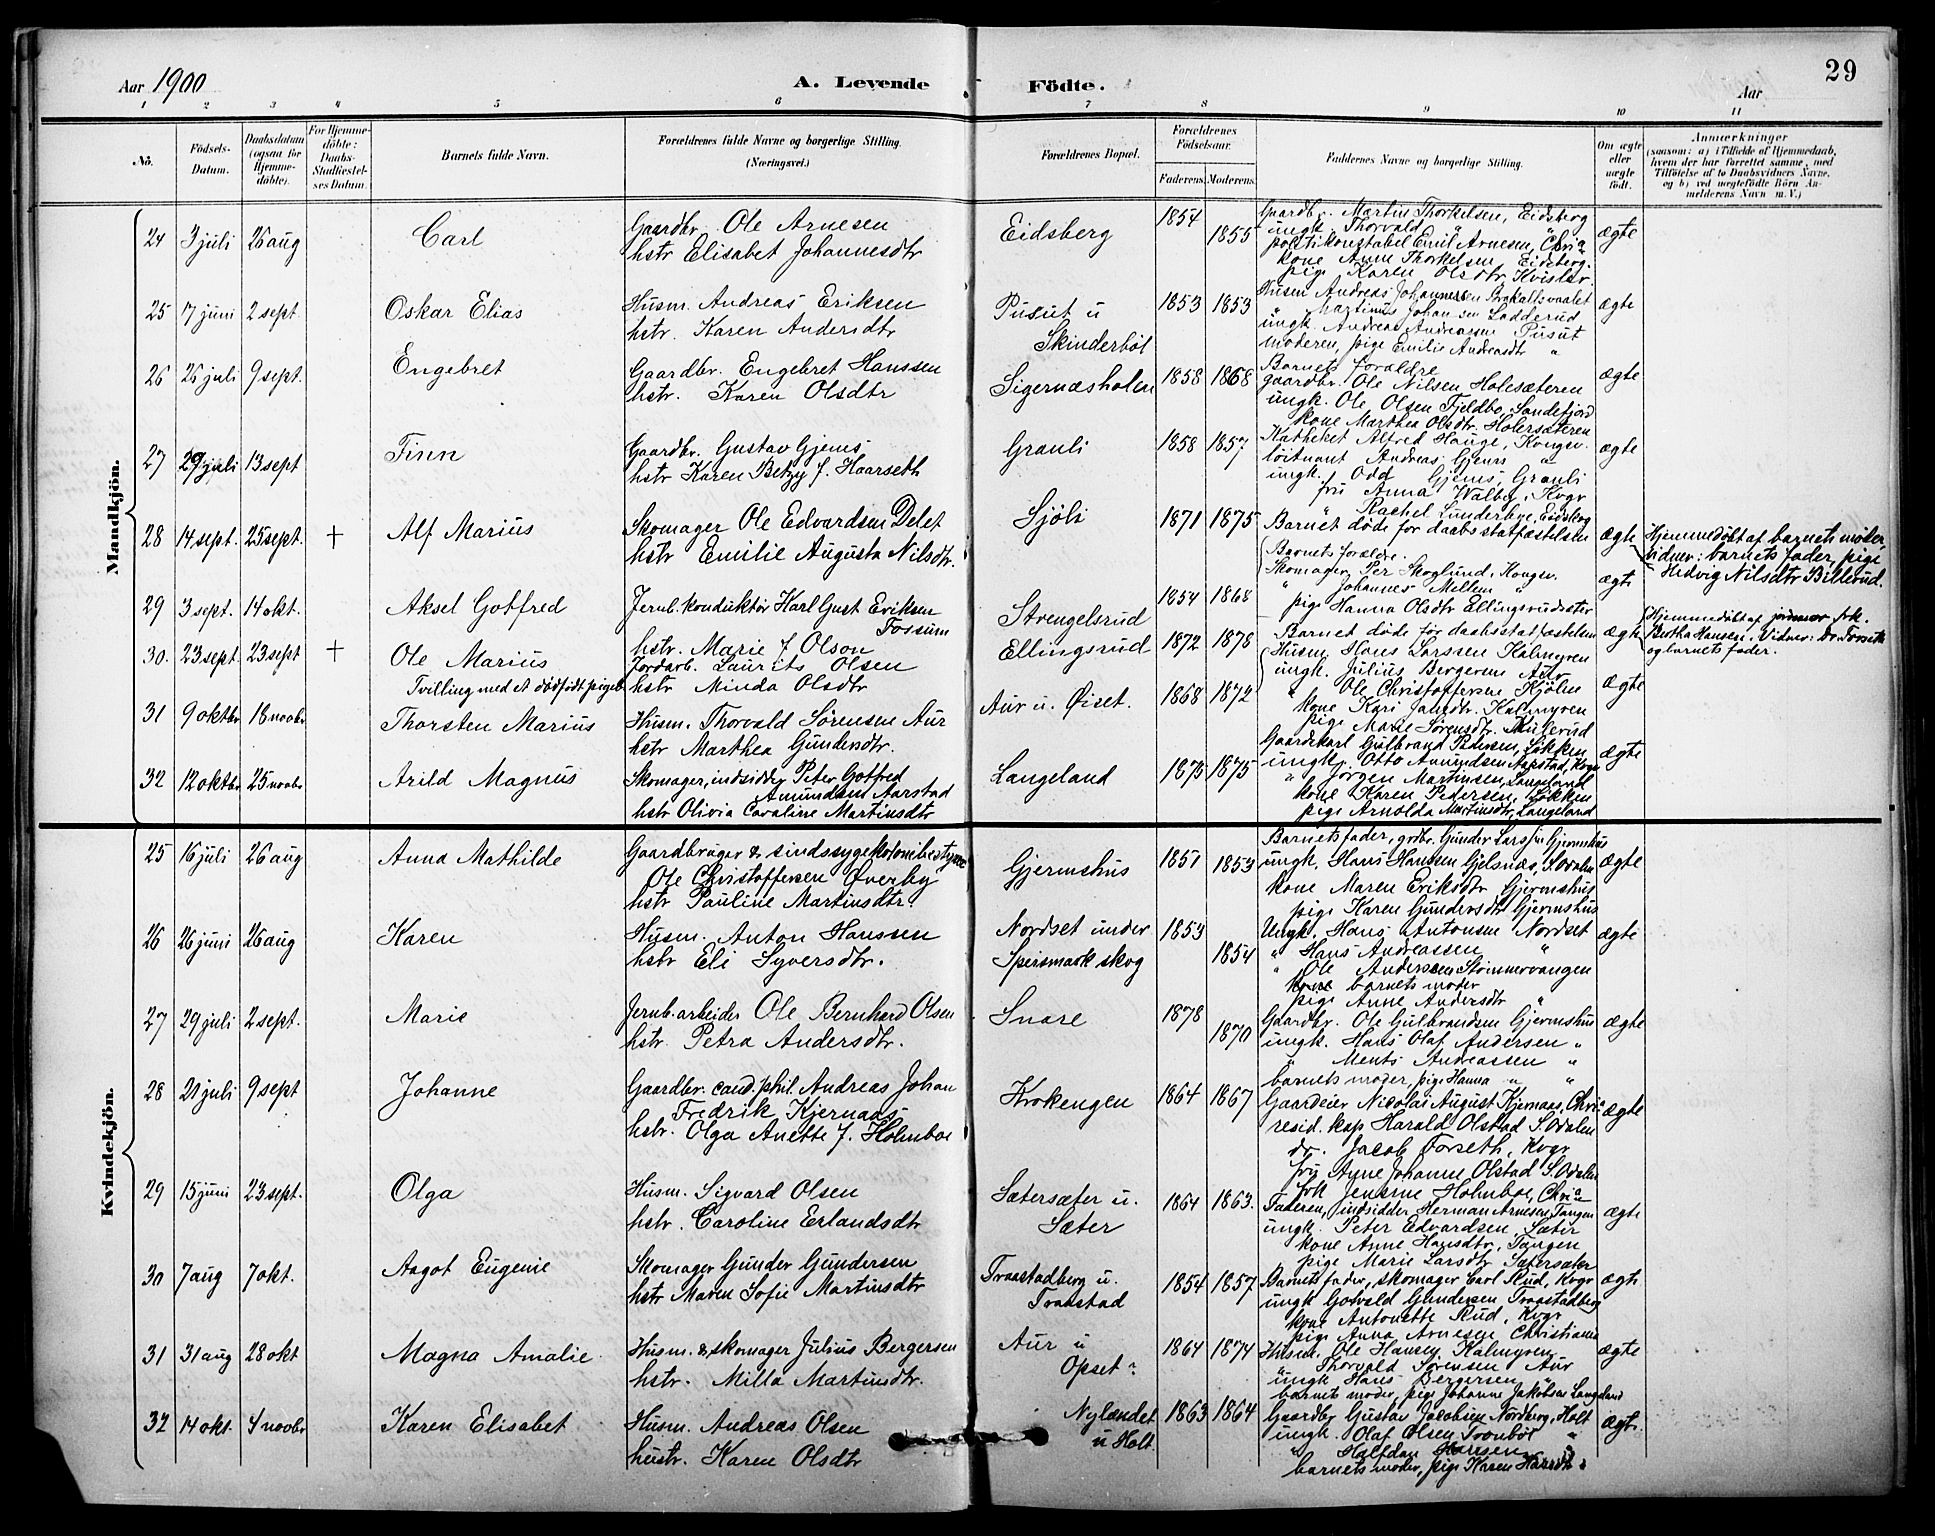 29
Aar 1900
A. Levende Födte.
Aar
1 2 3 4 5 6 7 8 9 10 11
No.
Födsels-Datum.
Daabsdatum (ogsaa for Hjemme-döbte).
For Hjemme-döbte: Daabs-Stadfæstel-ses Datum.
Barnets fulde Navn.
Forældrenes fulde Navne og borgerlige Stilling. (Næringsvei.)
Forældrenes Bopæl.
Forældrenes Födselsaar.
Faderens. Moderens.
Faddernes Navne og borgerlige Stilling.
Om ægte eller uægte födt.
Anmærkninger
(saasom: a) i Tilfælde af Hjemmedaab, hvem der har forrettet samme, med Tilföielse af to Daabsvidners Navne, og b) ved uægtefödte Börn An-melderens Navn m. V.)
Mandkjön.
24 3 juli 26 aug Carl
Gaardbr. Ole Arnesen
hstr Elisabet Johannesdtr
Eidsberg 1854 1855
Gaardbr. Martin Thorkelsen, Eidsberg
ungk. Thorvald " "
politikonstabel Emil Arnesen, Chria
kone Anne Thorkelsen, Eidsberg.
pige Karen Olsdtr
ægte
25 17 juni 2 sept. Oskar Elias
Husm. Andreas Eriksen
hstr. Karen Andersdtr
Pusut u Skinderböl 1853 1853
Husm Andreas Johannessen
" Martinus Johansen Ladderud
ungk. Andreas Andreassen Pusut
moderen, pige Emilie Andreasdtr "
ægte
26 26 juli 9 sept. Engebret
Gaardbr. Engebret Hanssen
hstr. Karen Olsdtr
Sigernæsholen 1858 1868
Barnets forældre
gaardbr. Ole Nilsen Holesæteren
ungk. Ole Olsen Fjeldbo, Sandefjord
kone Marthea Olsdtr. Holersæteren
ægte
27 29 juli 13 sept Finn
Gaardbr. Gustav Gjems
hstr Karen Betzy f. Haarseth
Granli 1858 1857
Katheket Alfred Hauge, Kongsv.
löitnant Andreas Gjems "
ungk. Odd Gjems, Granli
fru Anna Walby, Kvgr
" Rachel Lunderbye, Eidskog
ægte
28 14 sept. 25 sept. + Alf Marius
Skomager Ole Edvardsen Delet
hstr Emilie Augusta Nilsdtr.
Sjöli 1871 1875
Barnet döde för daabsstatfæstelsen
ægte
Hjemmedöbt af barnets moder,
vidner: barnets fader, pige
Hedvig Nilsdtr Billerud.
29 3 sept. 14 okt. Aksel Gotfred
Jernb. konduktör Karl Gust Eriksen Fossum
hstr. Marie f. Olson
Strengelsrud 1854 1868
Barnets forældre.
Skomager Per Skoglund, Kongsv.
" Johannes Mellem "
pige Hanna Olsdtr Ellingsrudsæter
ægte
30. 23 sept. 23 sept + Ole Marius
Tvilling med et dödfödt pigeb.
Jordarb. Laurits Olsen
hstr Minda Olsdtr
Ellingsrud 1872 1878
Barnet döde för daabsstatfæstelsen
ægte
Hjemmedöbt af jordmor frk.
Bertha Hansen. Vidner: Dr Forseth
og barnets fader.
31 9 oktbr 18 novbr Thorsten Marius
Husm. Thorvald Sörensen Aur
hstr Marthea Gundersdtr.
Aur u. Öiset. 1868 1872
Husm Hans Larssen Kalmyren
ungk. Julius Bergersen Aur
" Ole Christoffersen Kjölen
kone Kari Jansdtr. Kalmyren
pige Marie Sörensdtr.
ægte
32 12 oktbr 25 novbr Arild Magnus
Skomager, indsidder Peter Gotfred Amundsen Aarstad
hstr Olivia Caroline Martinsdtr
Langeland 1875 1875
Gaardskarl Gulbrand Pedersen, Lökken
ungk. Otto Amundsen Aarstad, Kvgr
" Jörgen Martinsen, Langeland
kone Karen Pedersen, Lökken
pige Arnolda Martinsdtr, Langeland
ægte
Kvindekjön.
25 16 juli 26 aug Anna Mathilde
Gaardbruger & sindssygekolonibestyrer
Ole Christoffersen Överby
hstr Pauline Martinsdtr.
Gjermshus 1851 1853
Barnets fader, grdbr. Gunder Larssen Gjermshus
ungk. Hans Hanssen Gjelsnæs, S. Odalen
kone Maren Eriksdtr Gjermshus
pige Karen Gundersdtr Gjermshus
ægte
26 26 juni 26 aug Karen
Husm. Anton Hanssen
hstr Eli Syversdtr.
Nordset under Speismark skog 1853 1854
Ungk. Hans Antonsen Nordset
" Hans Andreassen "
" Ole Andersen Stömnervangen
kone barnets moder
pige Anne Andersdtr "
ægte
27 29 juli 2 sept. Marie
Jernb. arbeider Ole Bernhard Olsen
hstr. Petra Andersdtr.
Snare 1878 1870
Gaardbr. Ole Gulbrandsen Gjermshus
ungk. Hans Olaf Andersen "
" Ments Andreassen "
barnets moder, pige Hanna " "
ægte
28 21 juli 9 sept Johanne
Gaardbr. cand. phil. Andreas Johan Fredrik Kjernaas
hstr. Olga Anette f. Holmboe
Krokengen 1864 1867
Gaardeier Nicolai August Kjernaas, Chria
resid. kap Harald Olstad S. Odalen
dr. Jacob Forseth, Kvgr
fru Anne Johanne Olstad S. Odalen
frk Jensine Holmboe, Chria
ægte
29 15 juni 23 sept. Olga
Husm. Sigvard Olsen
hstr. Caroline Erlandsdtr
Sætersæter u. Sæter 1864 1863.
Faderen, indsidder Herman Arnesen Tangen
ungk. Peter Edvardsen, Sæter
kone Anne Hansdtr, Tangen
pige Marie Larsdtr Sætersæter
ægte
30 7 aug 7 okt. Aagot Eugenie
Skomager Gunder Gundersen
hstr Maren Sofie Martinsdtr
Traastadberg u. Traastad 1854 1857
Barnets fader, skomager Carl Rud, Kvgr
ungk Gotvald Gundersen Traastadberg
kone Antonette Rud, Kvgr
pige Anna Arnesen, Christiania
ægte
31 31 aug 28 okt Magna Amalie
Husm. & skomager Julius Bergersen
hstr. Milla Martinsdtr.
Aur u Opset. 1864 1874
Husm. Ole Hansen Kalmyren
" Thorvald Sörensen Aur
ungk Hans Bergersen "
barnets moder, pige Johanne Jakobsen Langeland
ægte
32 14 okt. 4 novbr Karen Elisabet
Husm. Andreas Olsen
hustr. Karen Olsdtr
Nylændet u Holt 1863 1864
Gaardbr Gustav Jacobsen Nordberg, Holt
ungk. Olaf Olsen Tronböl "
" Halfdan Hansen "
barnets moder, pige Karen Hansdtr "
ægte